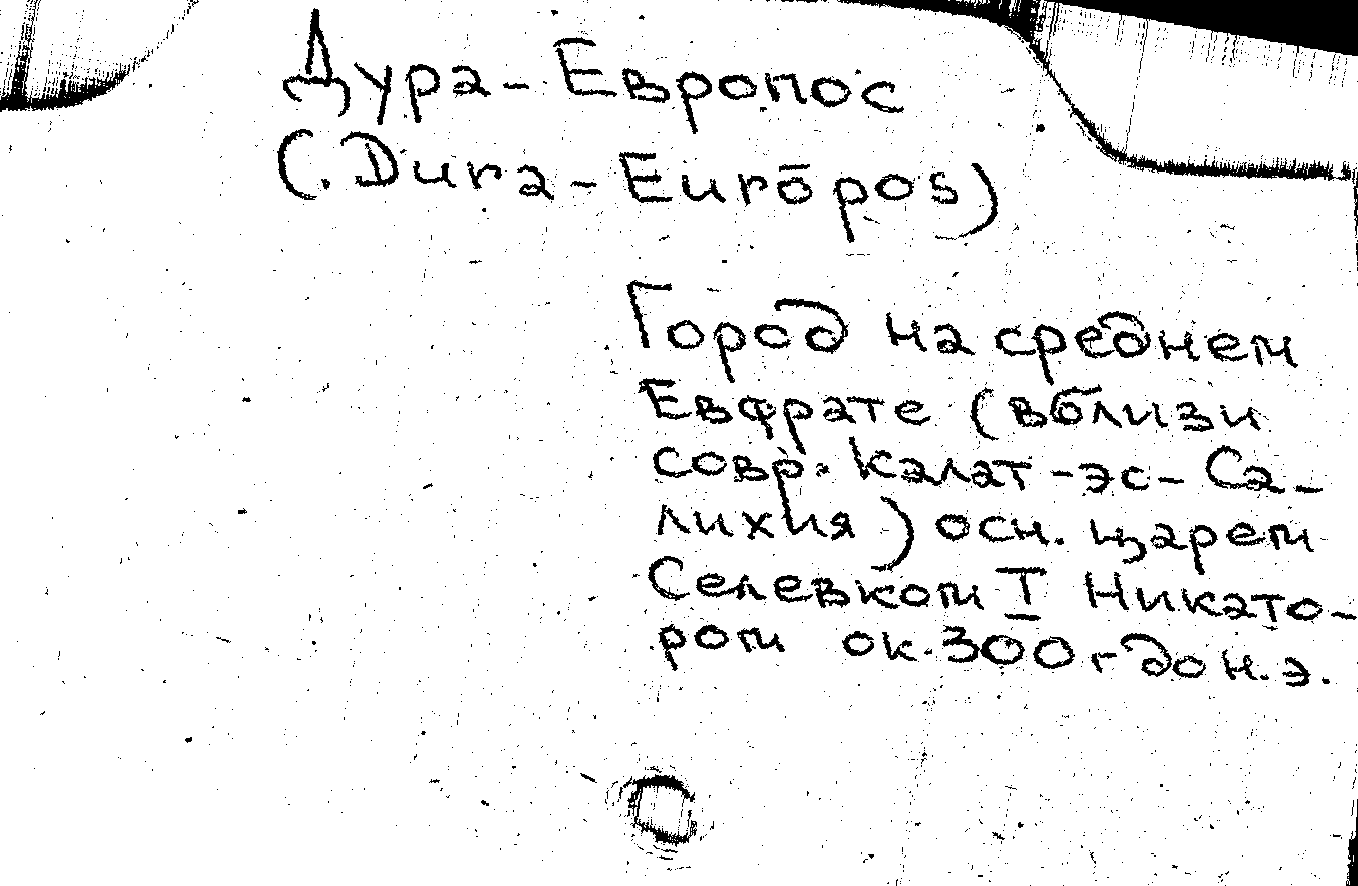 Дура-Европос
(Dura-Eurōpos)
Город на среднем
Евфрате (вблизи
совр. Калат-эс-Са-
лихия) осн. царем
Селевком I Никато-
ром ок. 300 г до н.э.